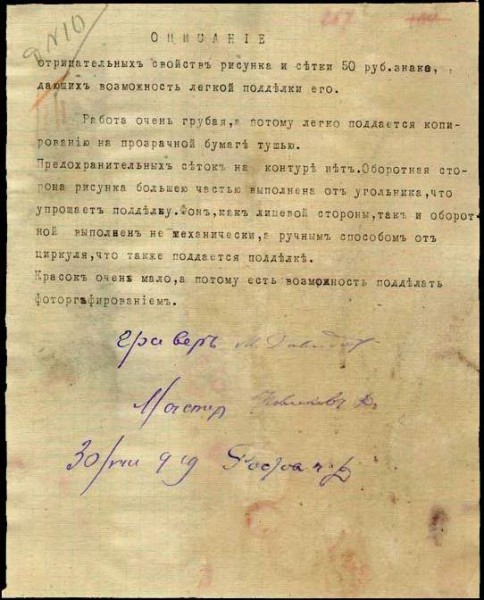 №10
267
ОПИСАНІЕ
отрицательныхъ свойствъ рисунка и сѣтки 50 руб.знака,
дающихъ возможность легкой поддѣлки его.
Работа очень грубая,а потому легко поддается копи-
рованію на прозрачной бумагѣ тушью.
Предохранительныхъ сѣтокъ на контурѣ нѣтъ.Оборотная сто-
рона рисунка большею частью выполнена отъ угольника,что
упрощаетъ поддѣлку.Фонъ,какъ лицевой стороны,такъ и оборот-
ной выполненъ не механически,а ручнымъ способомъ отъ
циркуля,что также поддается поддѣлкѣ.
Красокъ очень мало,а потому есть возможность поддѣлать
фоторгафированіемъ.
Граверъ
Мастер
30/ 919